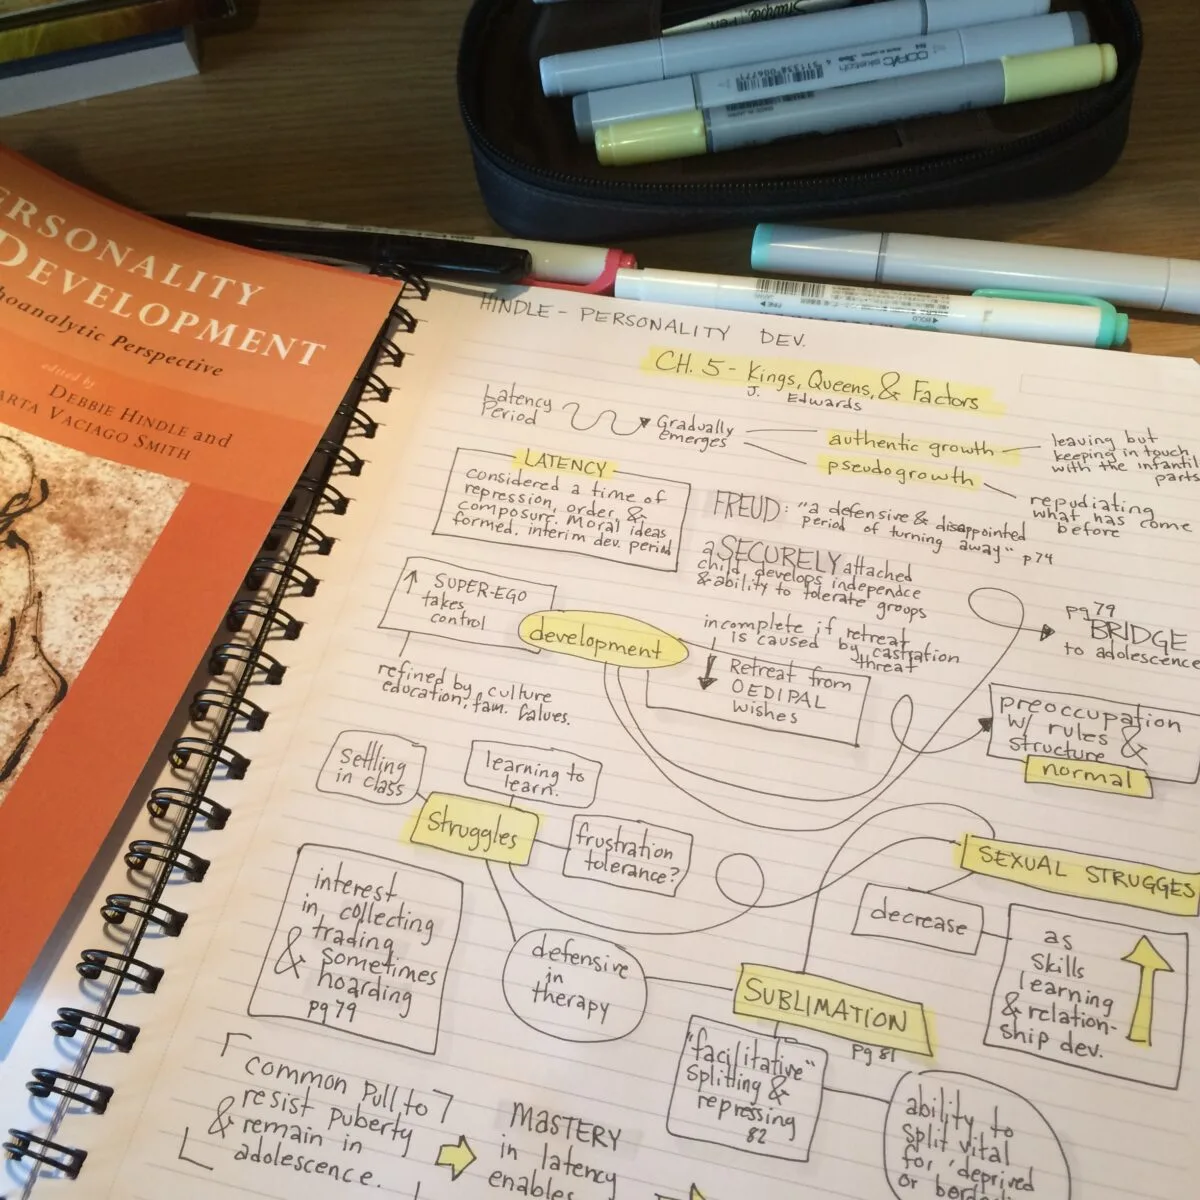 Sharpie. Pen.
COPIC sketch
PERSONALITY
DEVELOPMENT
hoanalytic Perspective
edited by
DEBBIE HINDLE and
ARTA VACIAGO SMITH
HINDLE - PERSONALITY DEV.
CH. 5 - Kings, Queens, & Factors
J. Edwards
Latency
Period
Gradually
emerges
authentic growth
pseudogrowth
leaving but
keeping in touch
with the infantil
parts
repudiating
what has come
before
LATENCY
considered a time of
repression, order, &
composure. Moral ideas
formed. interim dev. period
FREUD: "a defensive & disappointed
period of turning away" p74
a SECURELY attached
child develops independce
& ability to tolerate groups
↑ SUPER-EGO
takes
control
development
incomplete if retreat
is caused by castration
threat
Retreat from
OEDIPAL
wishes
pg 79
BRIDGE
to adolescence
refined by culture
education, fam. values.
preoccupation
w/ rules &
structure
normal
settling
in class
learning to
learn.
Struggles
frustration
tolerance?
SEXUAL STRUGGES
decrease
as
skills
learning
& relation-
ship dev.
interest
in collecting
trading
& sometimes
hoarding
pg 79
defensive
in
therapy
SUBLIMATION
pg 81
"facilitative"
splitting &
repressing
82
ability to
split vital
for 'deprived
common pull to
resist puberty
& remain in
adolescence.
MASTERY
in latency
enables